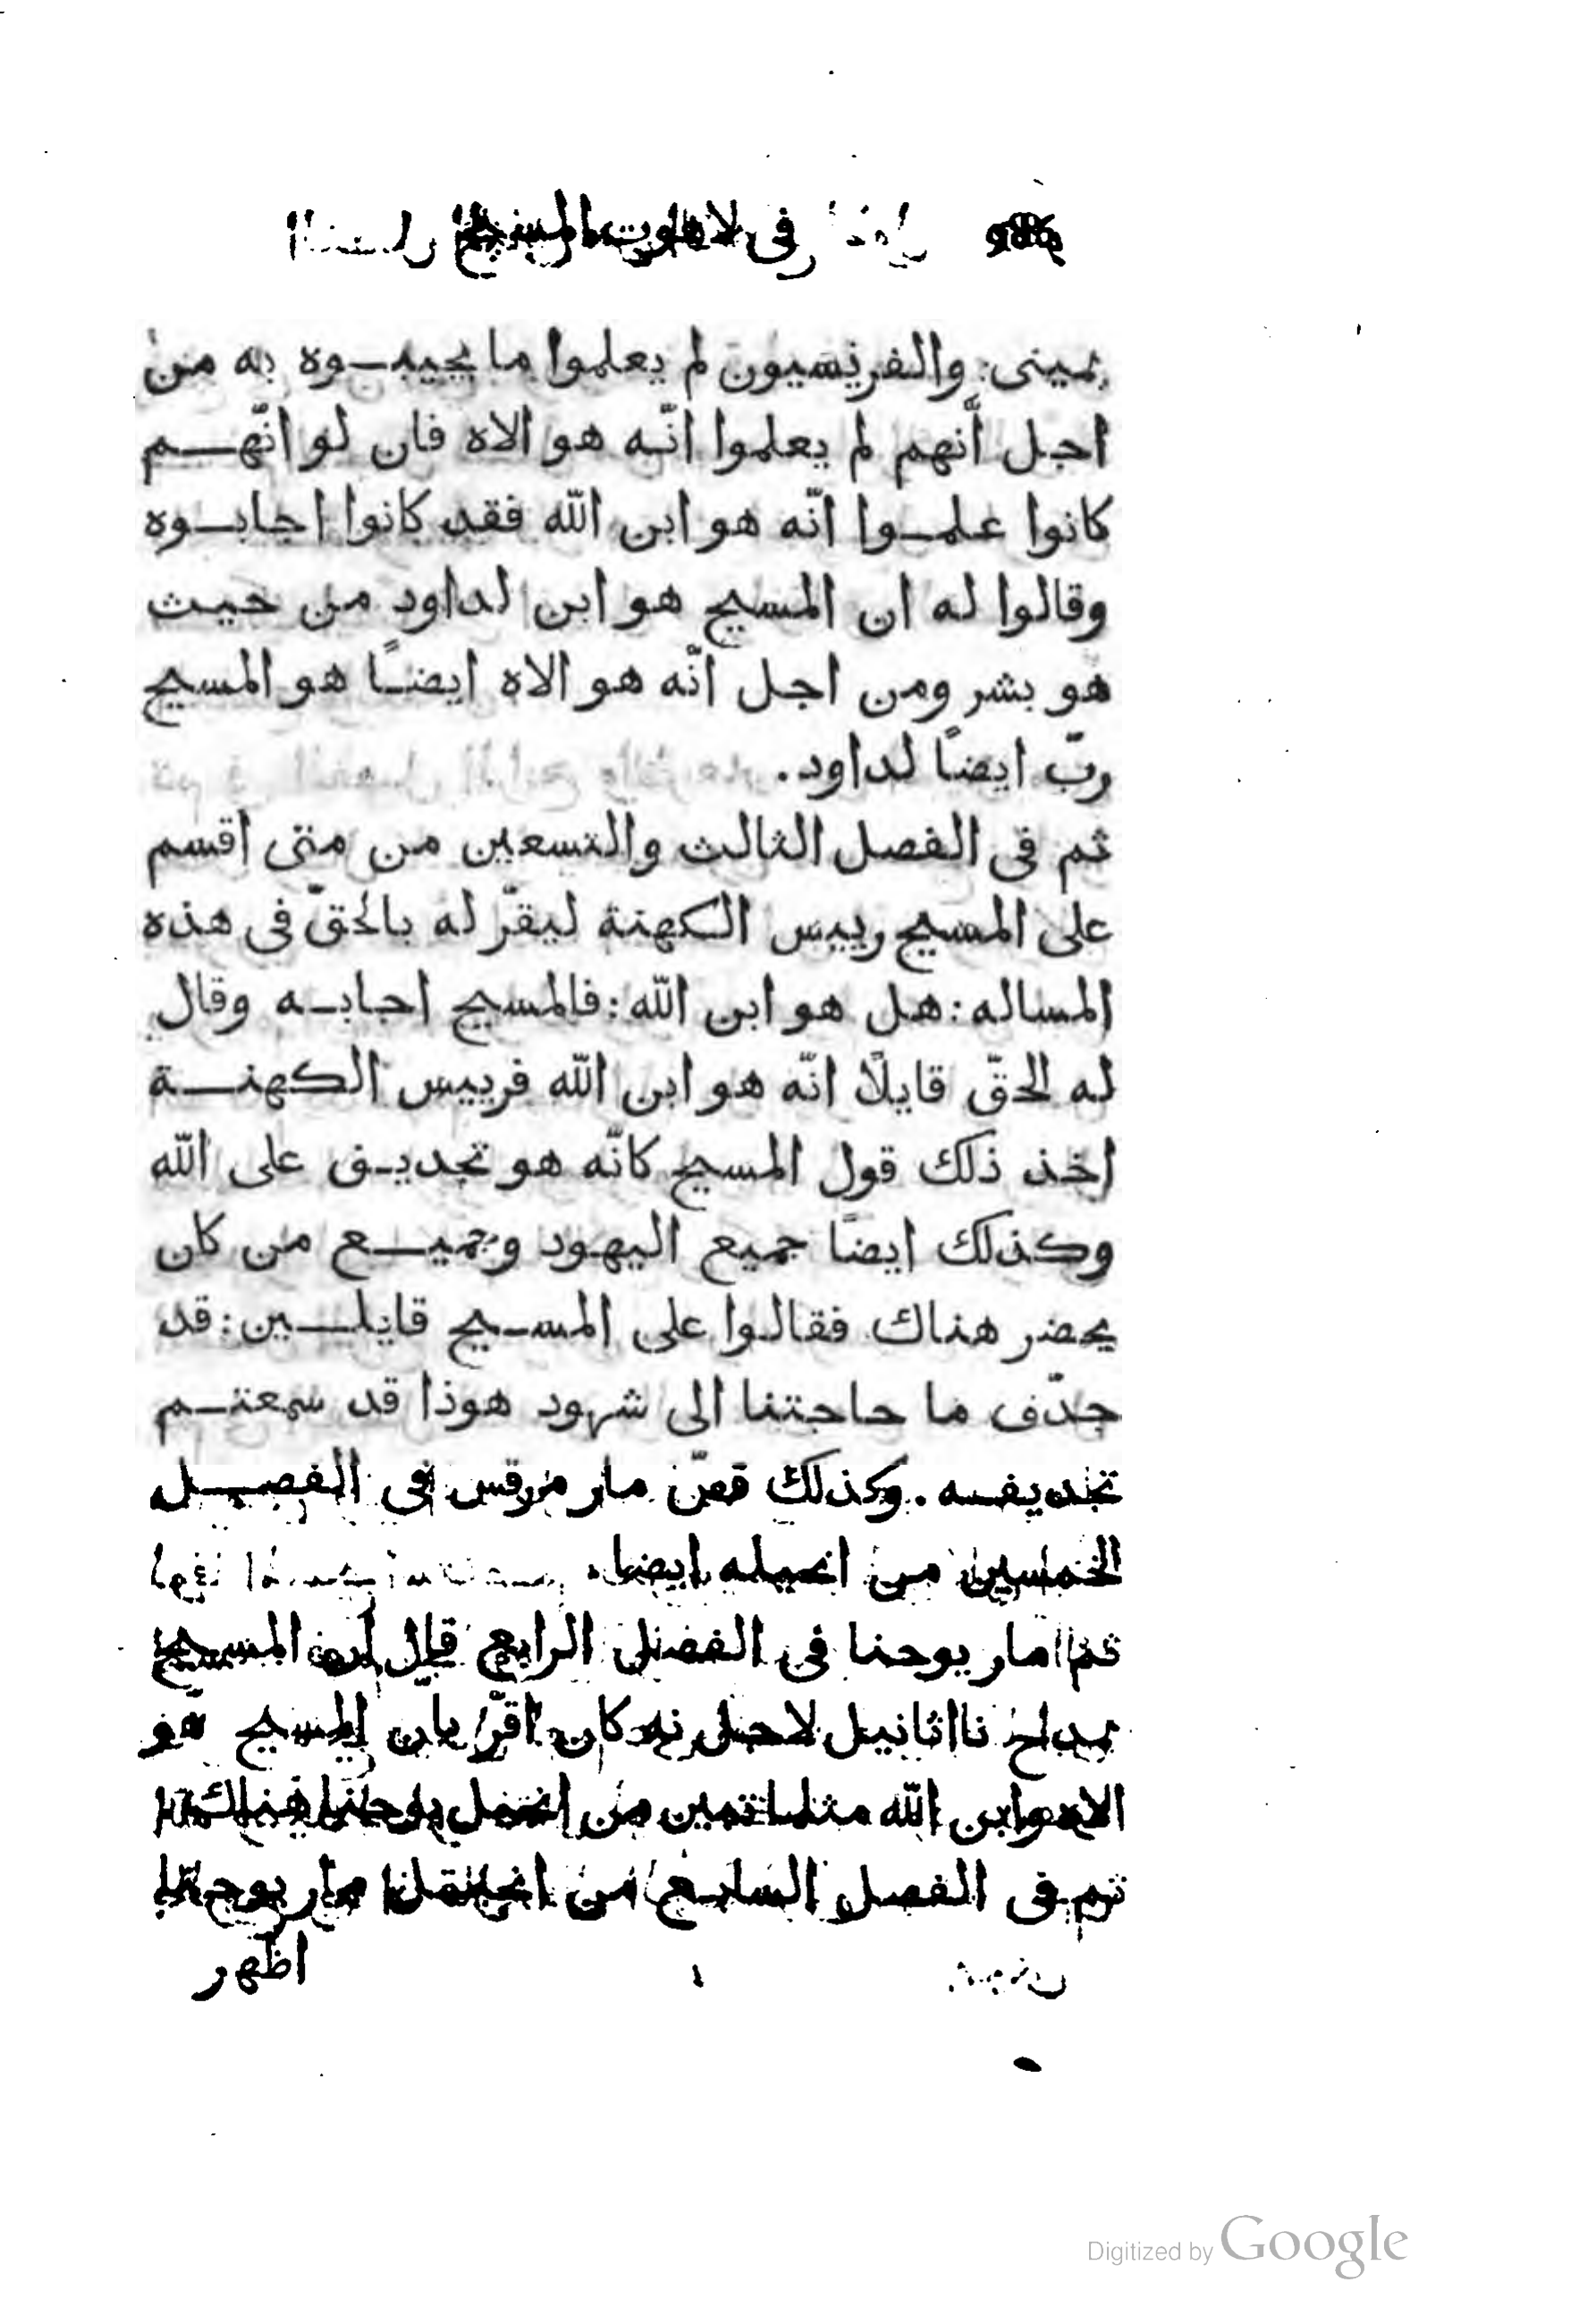 فى لاهوت المسيح
بمينى: والفريسيون لم يعلموا ما يجيبـوه به من
اجل أنهم لم يعلموا انّه هو الاه فان لو انّهـم
كانوا علمـوا انّه هو ابن اللّه فقد كانوا اجابـوه
وقالوا له ان المسيح هو ابن لداود من حيث
هو بشر ومن اجل انّه هو الاه ايضًا هو المسيح
ربّ ايضًا لداود.
ثم فى الفصل الثالث والتسعين من متى اقسم
على المسيح رييس الكهنة ليقرّ له بالحقّ فى هذه
المساله: هل هو ابن اللّه: فالمسيح اجابـه وقال
له الحقّ قايلًا انّه هو ابن اللّه فرييس الكهنـة
اخذ ذلك قول المسيح كانّه هو تجديـف على اللّه
وكذلك ايضًا جميع اليهود وجميـع من كان
يحضر هناك فقالوا على المسـيح قايلـين: قد
جدّف ما حاجتنا الى شهود هوذا قد سمعتـم
تجديفـه. وكذلك قصّ مار مرقس فى الفصـل
الخمسين من انجيله ايضا.
ثم مار يوحنا فى الفصل الرابع قال ان المسيح
بمداح نااثانيل لاجل انه كان اقرّ بان المسيح هو
الاه وابن اللّه مثلما تبين من انجيل يوحنا هناك
ثم فى الفصل السابـع من انجيل مار يوحنا
اظهر
Digitized by Google